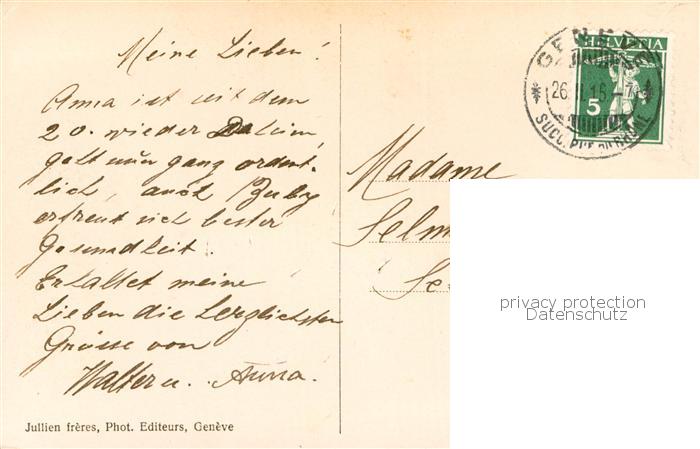 Meine Lieben!
Anna ist seit dem
20. wieder Daheim
geht nun ganz ordent-
lich, auch
erfreut sich bester
Gesundheit.
Erhaltet meine
Lieben die herzlichsten
Grüsse von
Walter u. Anna.
Jullien frères, Phot. Editeurs, Genève
Madame
Selm
GENÈVE
26. II. 16 - 7
SUCC. RUE DU
HELVETIA
5
privacy protection
Datenschutz